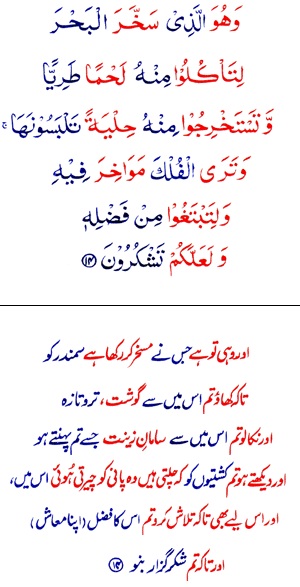 وَهُوَ الَّذِىْ سَخَّرَ الْبَحْرَ
لِتَاْكُلُوْا مِنْهُ لَحْمًا طَرِيًّا
وَّتَسْتَخْرِجُوْا مِنْهُ حِلْيَةً تَلْبَسُوْنَهَا ۚ
وَتَرَى الْفُلْكَ مَوَاخِرَ فِيْهِ
وَلِتَبْتَغُوْا مِنْ فَضْلِهٖ
وَ لَعَلَّكُمْ تَشْكُرُوْنَ ﴿۱۴﴾
اور وہی تو ہے جس نے مسخر کر رکھا ہے سمندر کو
تاکہ کھاؤ تم اس میں سے گوشت، تروتازہ
اور نکالو تم اس میں سے سامانِ زینت جسے تم پہنتے ہو
اور دیکھتے ہو تم کشتیوں کو کہ چلتی ہیں وہ پانی کو چیرتی ہُوئی اس میں،
اور اس لیے بھی تاکہ تلاش کرو تم اس کا فضل (اپنا معاش)
اور تاکہ تم شکر گزار بنو ﴿۱۴﴾